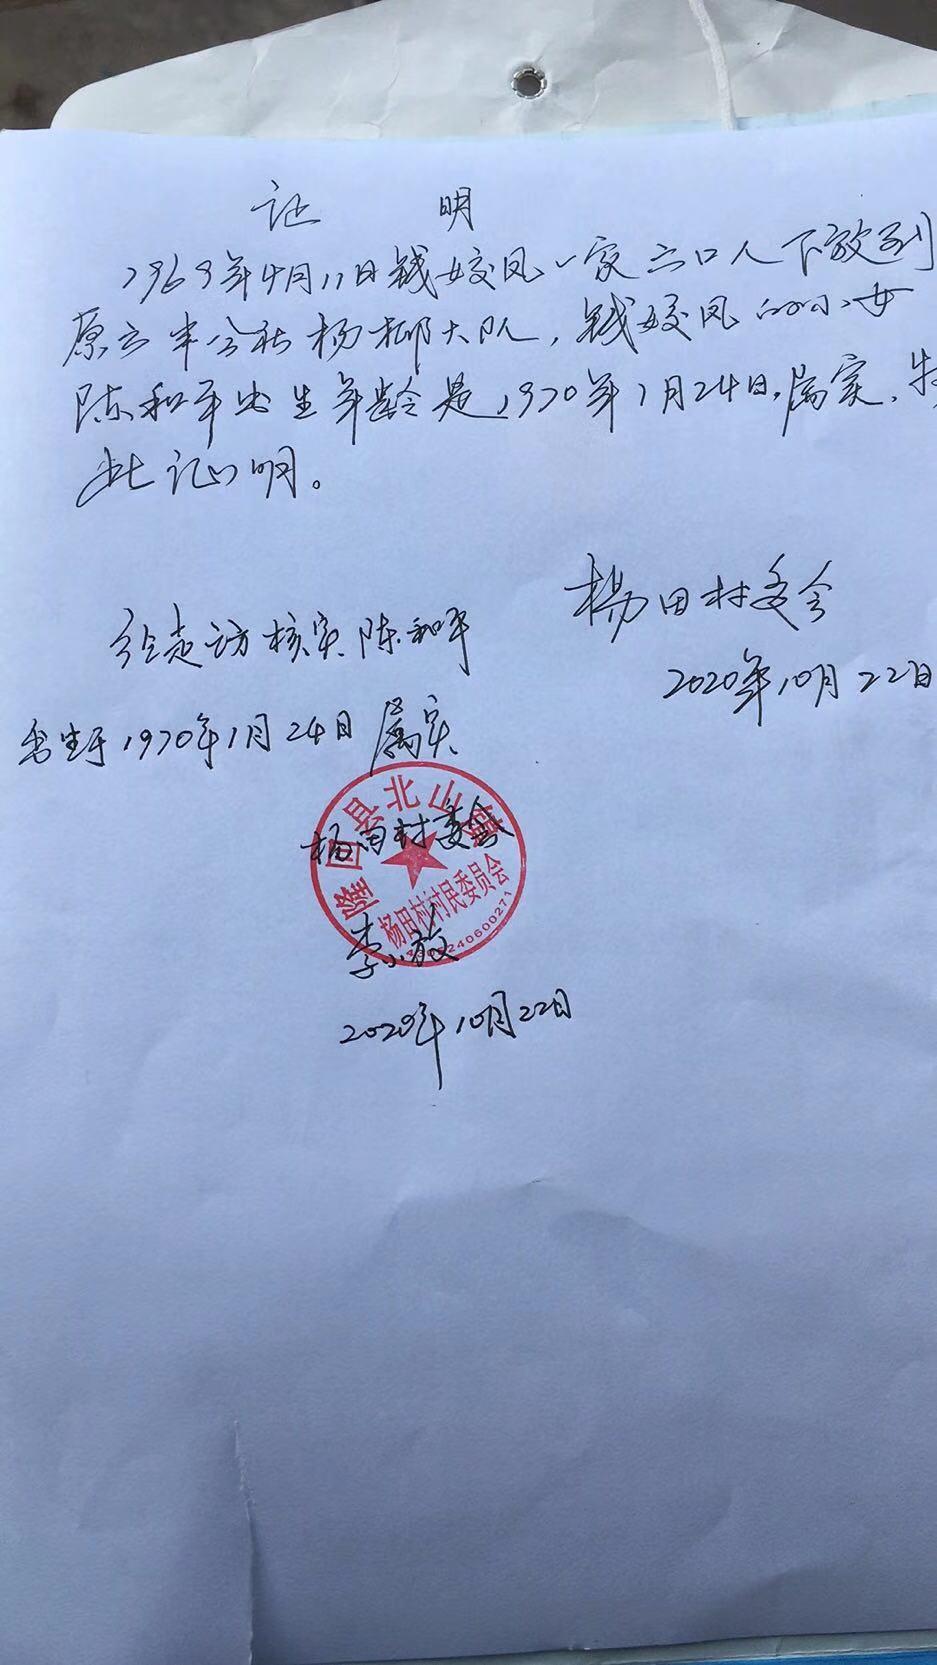 证 明
1969年4月11日钱姣凤一家六口人下放到
原六半公社杨柳大队,钱姣凤的小女
陈和平出生年龄是1970年1月24日,属实.特
此证明。
杨田村委会
2020年10月22日
经走访核实陈和平
出生于1970年1月24日属实
隆回县北山镇
杨田村委会
杨田村村民委员会
李小放
2020年10月22日